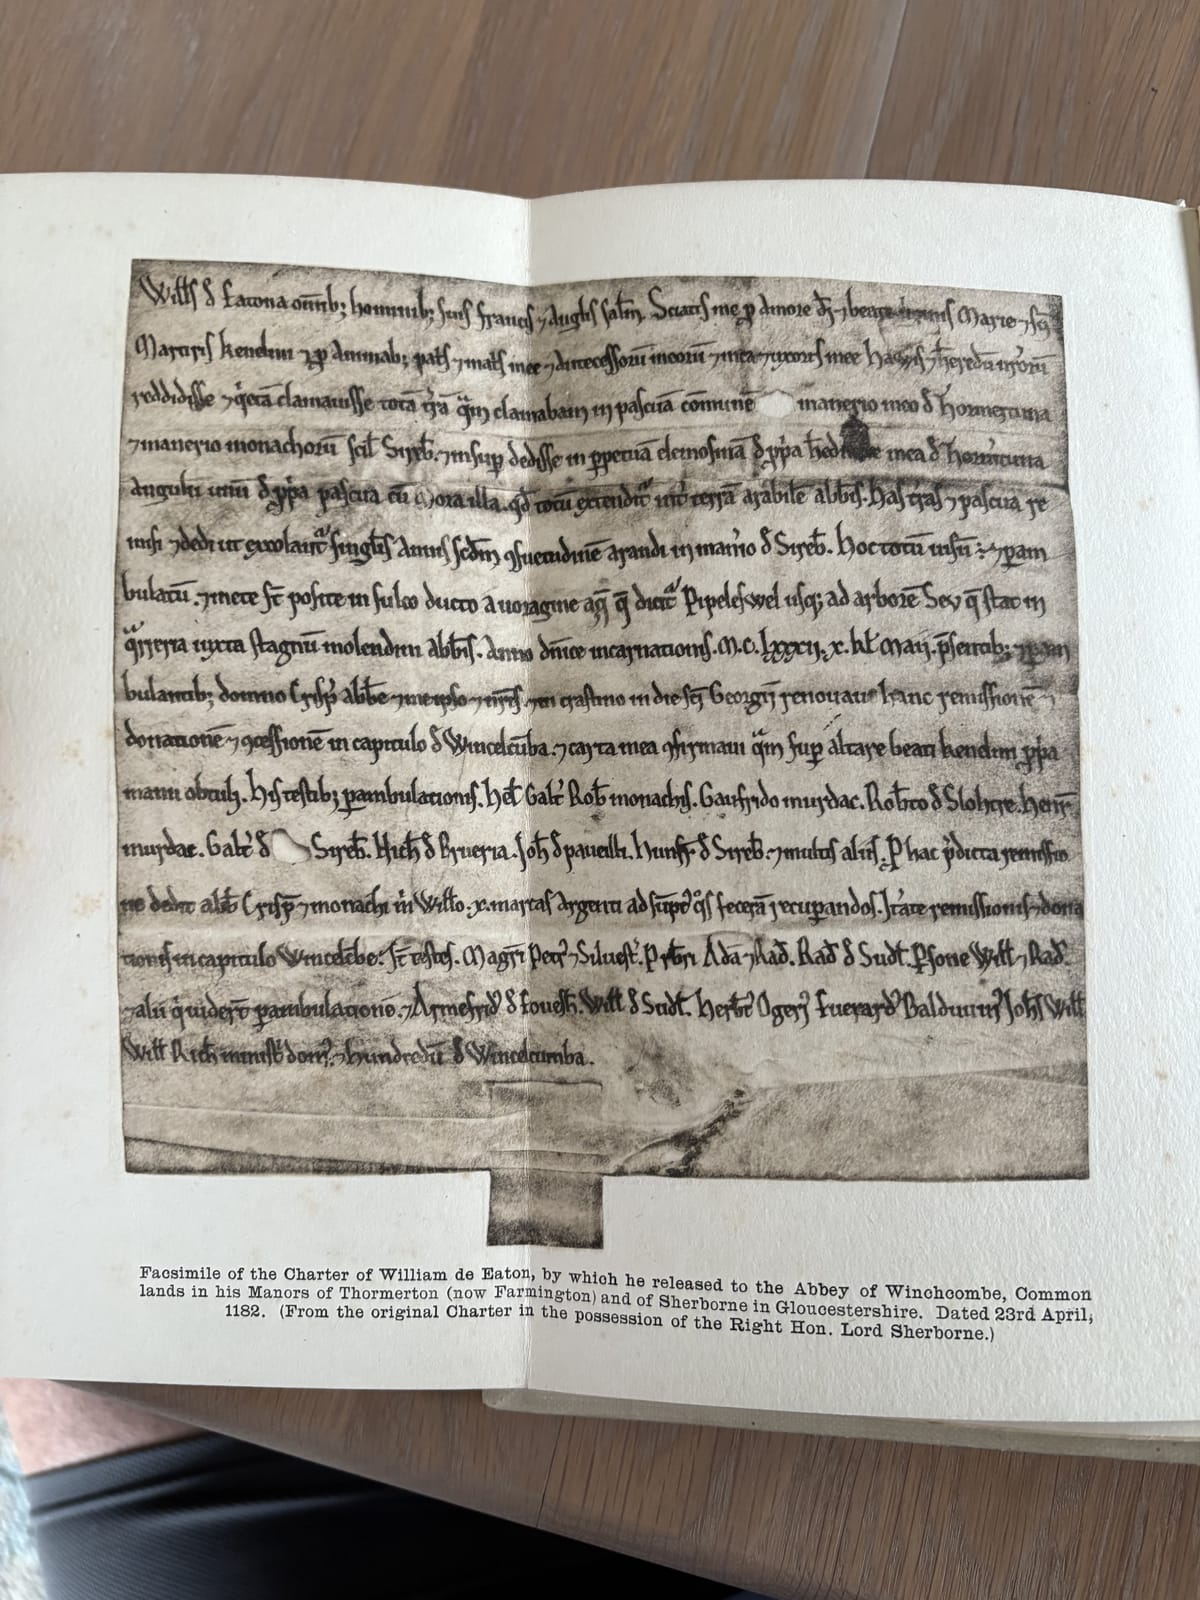 Witts d Eatona omīb; hominib; suis francis ⁊ Anglis sal̄m. Sciatis me ꝑ Amore dī ⁊ beate Marie ⁊ sc̄i
Martiris kenelmi ⁊ ꝑ Animab; pat̄s ⁊ mat̄s mee ⁊ Antecessorū meorū ⁊ mea ⁊ uxoris mee ⁊ heredū
reddidisse ⁊ q̇etā clamauisse totā t̄rā q̄m clamabam in pascuā cōmunē manerio meo d
⁊ manerio monachorū scil̄ Sireb̄. ⁊ insuꝑ dedisse in ꝑpetuā elemosinā d ꝓpa mea d
Angulū unū d ꝓpa pascua cū Mora illa. qd̄ totū extendit᷑ int̄ terrā arabilē abb̄is. has t̄ras ⁊ pascua re
misi ⁊ dedi ut singlis Annis scd̄m ꝯsuetudinē arandi in man̄io d Sireb̄. hoc totū ⁊ ꝑam
bulatū. ⁊ mete st̄ posite in sulco ducto a uoragine aq̄ q̄ dicit᷑ Pipeleswel usq; ad arborē Sex q̄ stat in
qᷓrreria iuxta stagnū molendini abb̄is. Anno dn̄ice incarnationis. M.C. lxxxij. x. kl̄ Maij. p̄sentib; ⁊ ꝑam
bulantib; domno Crisp̄ abb̄e ⁊ meipso ⁊ ⁊ in crastino in die sc̄i Georgij renouaui hanc remissionē ⁊
donationē ⁊ ꝯcessionē in capitulo d Wincelcūba. ⁊ carta mea ꝯfirmaui q̄m suꝑ altare beati kenelmi ꝓpa
manu obtuli. his testib; ꝑambulationis. hel̄ Galt̄ Rob̄ monachis. Gaufrido murdac. Rob̄to d Slohtre. henr̄
murdac. Galt̄ d Sireb̄. Rich̄ d Brueria. Joh̄ d pauelli. hunfr̄ d Sireb̄. ⁊ multis aliis. P hac p̄dicta remissio
ne dedit abb̄ Crisp̄ ⁊ monachi m̄ Will̄o. x. marcas Argenti ad recuꝑandos. It̄ate remissionis ⁊ dona
tionis in capitulo Wincelc̄be. st̄ testes. Magr̄i Petr᷒ ⁊ Siluest̄. Prb̄ri Adā ⁊ Rad̄. Rad̄ d Sudl̄. Ꝑsone Will̄ ⁊ Rad̄.
⁊ alii q̇ uider̄t ꝑambulationē. ⁊ d Will̄ d Sudl̄. herb̄t᷒ Oger᷒ Euerard᷒ Balduuin᷒ Joh̄s Will̄
Will̄ Rich̄ minist̄ dom᷒. ⁊ hundredū d Wincelcumba.
Facsimile of the Charter of William de Eaton, by which he released to the Abbey of Winchcombe, Common
lands in his Manors of Thormerton (now Farmington) and of Sherborne in Gloucestershire. Dated 23rd April,
1182. (From the original Charter in the possession of the Right Hon. Lord Sherborne.)